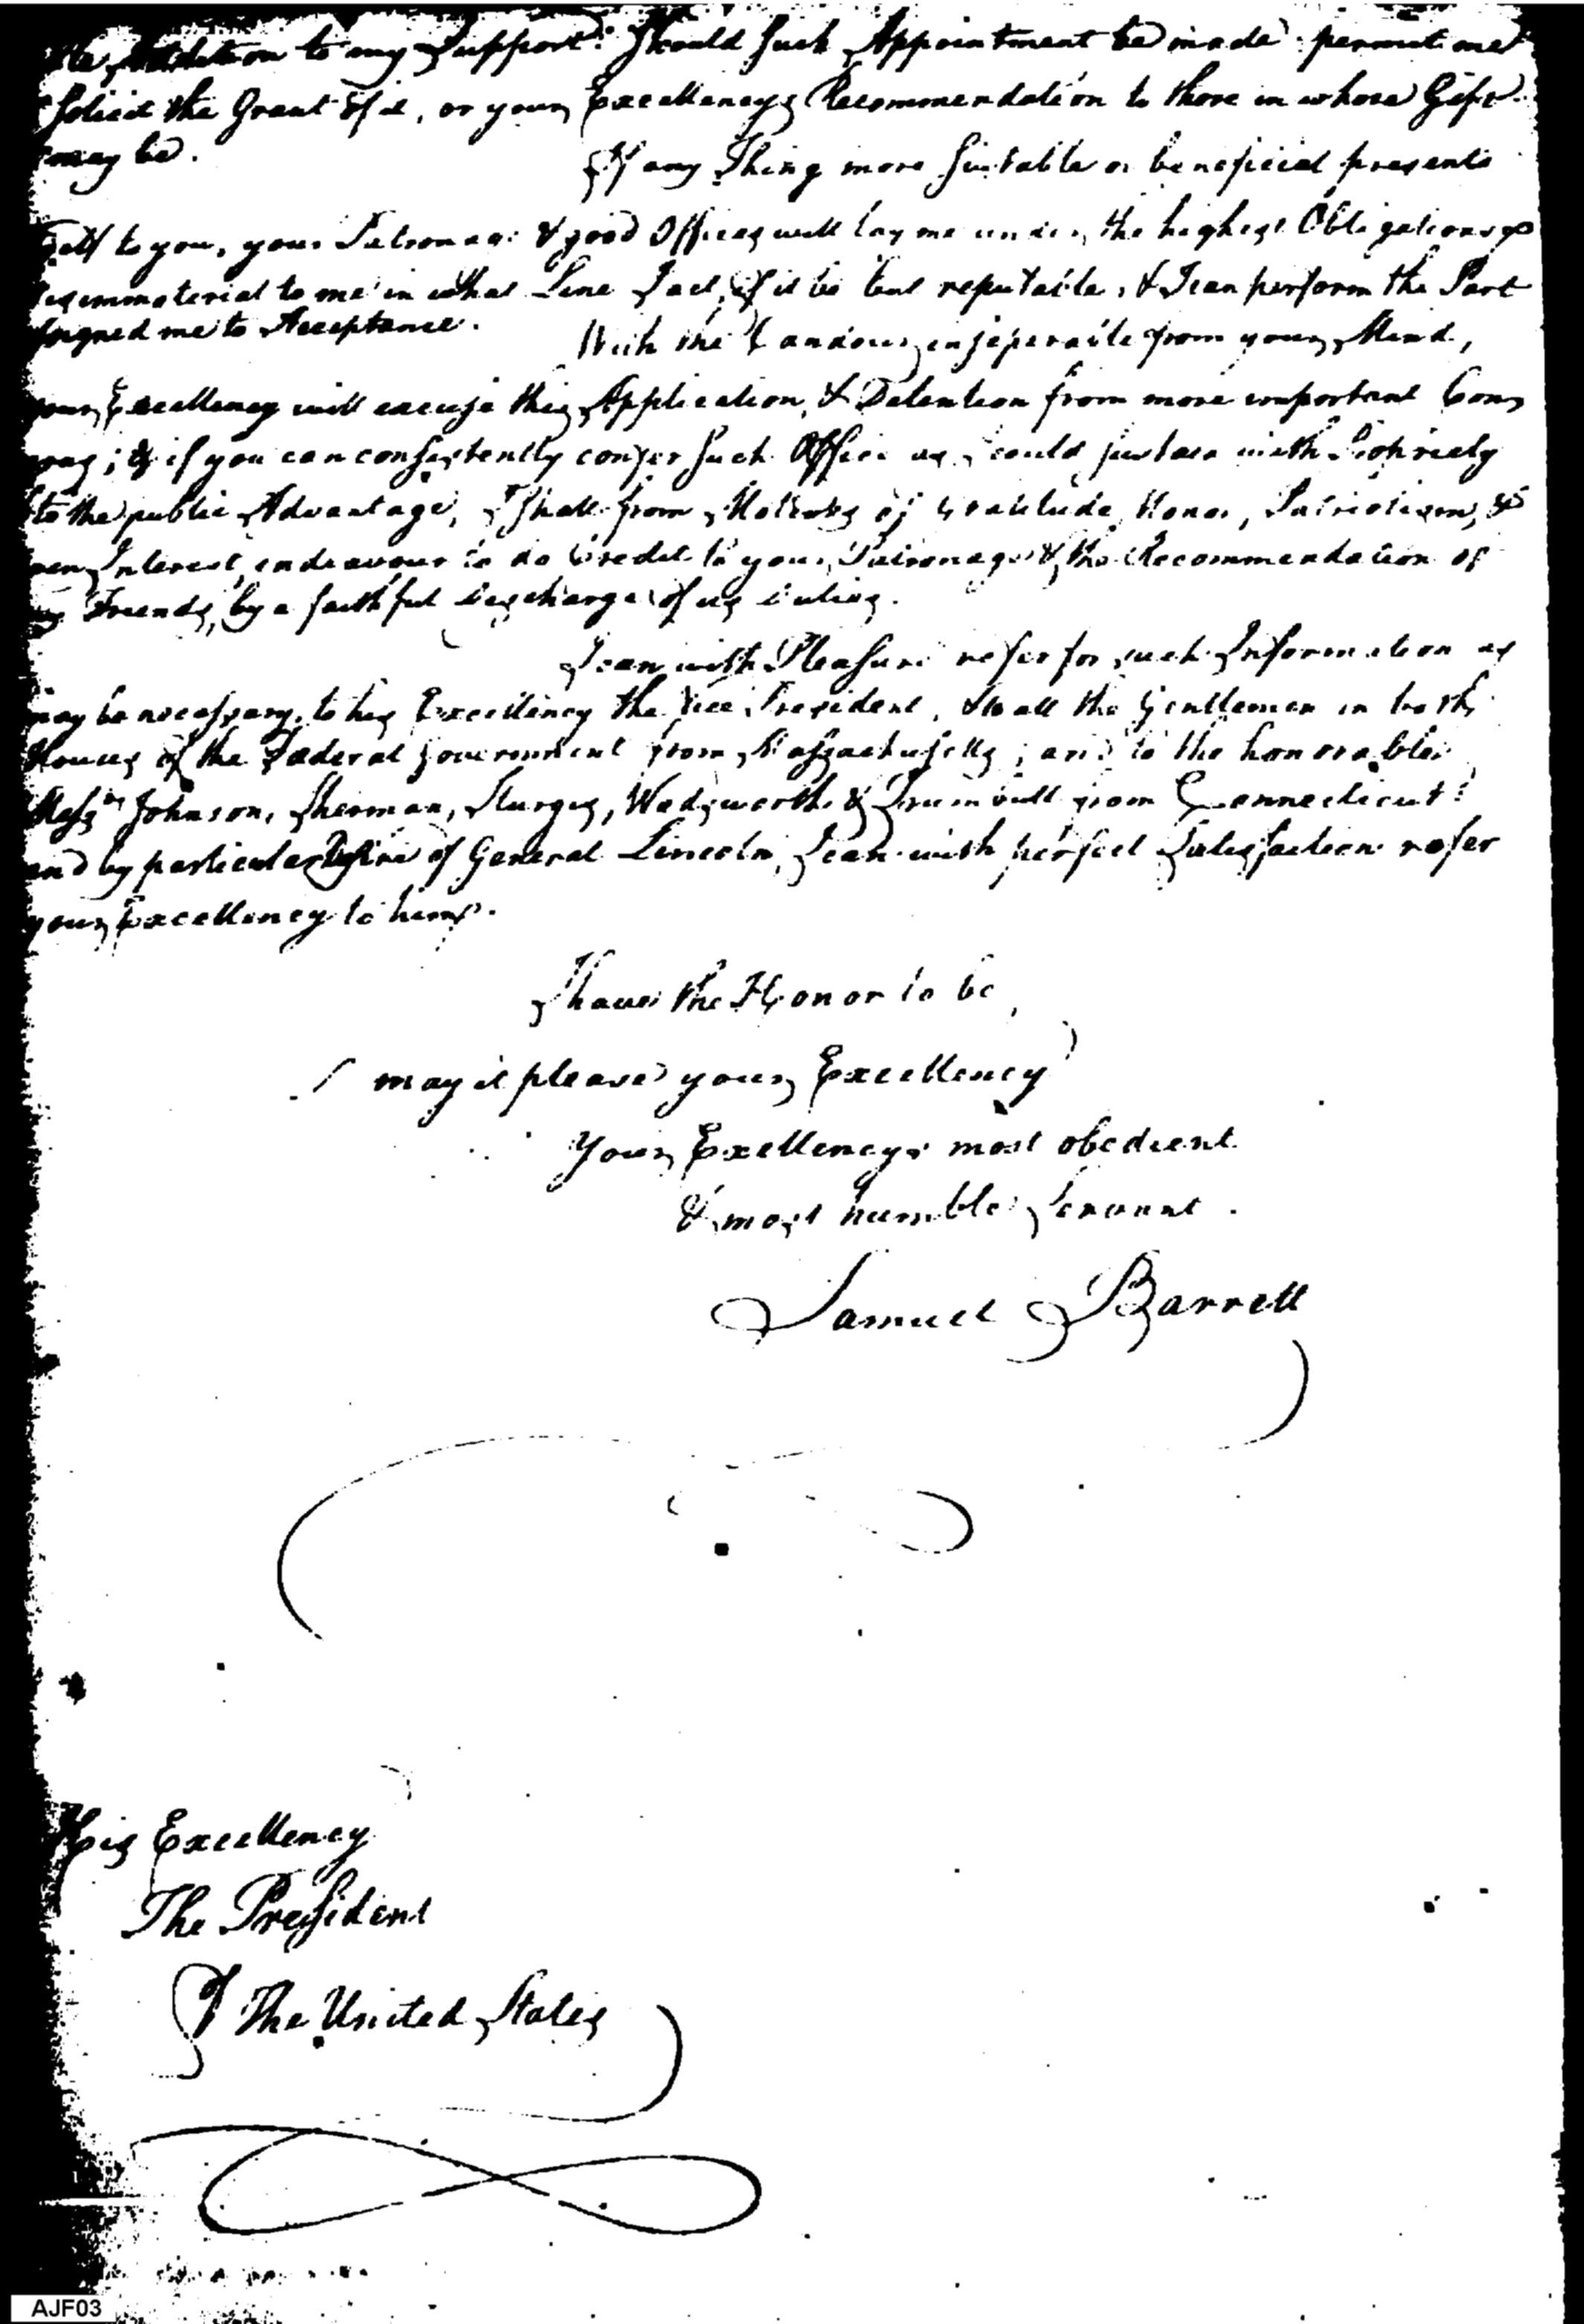 Addition to my Support. Should such Appointment be made permit me
Solicit the Grant of it, or your Excellencys Recommendation to those in whose Gift
may be. If any Thing more Suitable or beneficial presents
to you, your Patronage & good Offices will lay me under the highest Obligations
immaterial to me in what Line I act, if it be but reputable, & I can perform the Part
me to Acceptance. With the Candour inseperable from your Mind,
your Excellency will excuse this Application, & Detention from more important
; & if you can consistently confer such Office as I could sustain with Propriety
to the public Advantage, I Shall from Motives of Gratitude, Honor, Patriotism, &
Interest, endeavour to do Credit to your Patronage & the Recommendation of
my Friends, by a faithful Discharge of its Duties.
I can with Pleasure refer for such Information as
may be necessary, to his Excellency the Vice President, & to all the Gentlemen in both
Houses of the Fæderal Government from Massachusetts; and to the honorable
Messrs Johnson, Sherman, Sturges, Wadsworth & Trumbull from Connecticut:
and by particular Desire of General Lincoln, I can with perfect Satisfaction refer
your Excellency to him.
I have the Honor to be,
may it please your Excellency
Your Exellencys most obedient
& most humble Servant.
Samuel Barrett
His Excellency
The President
Of The United States
AJF03